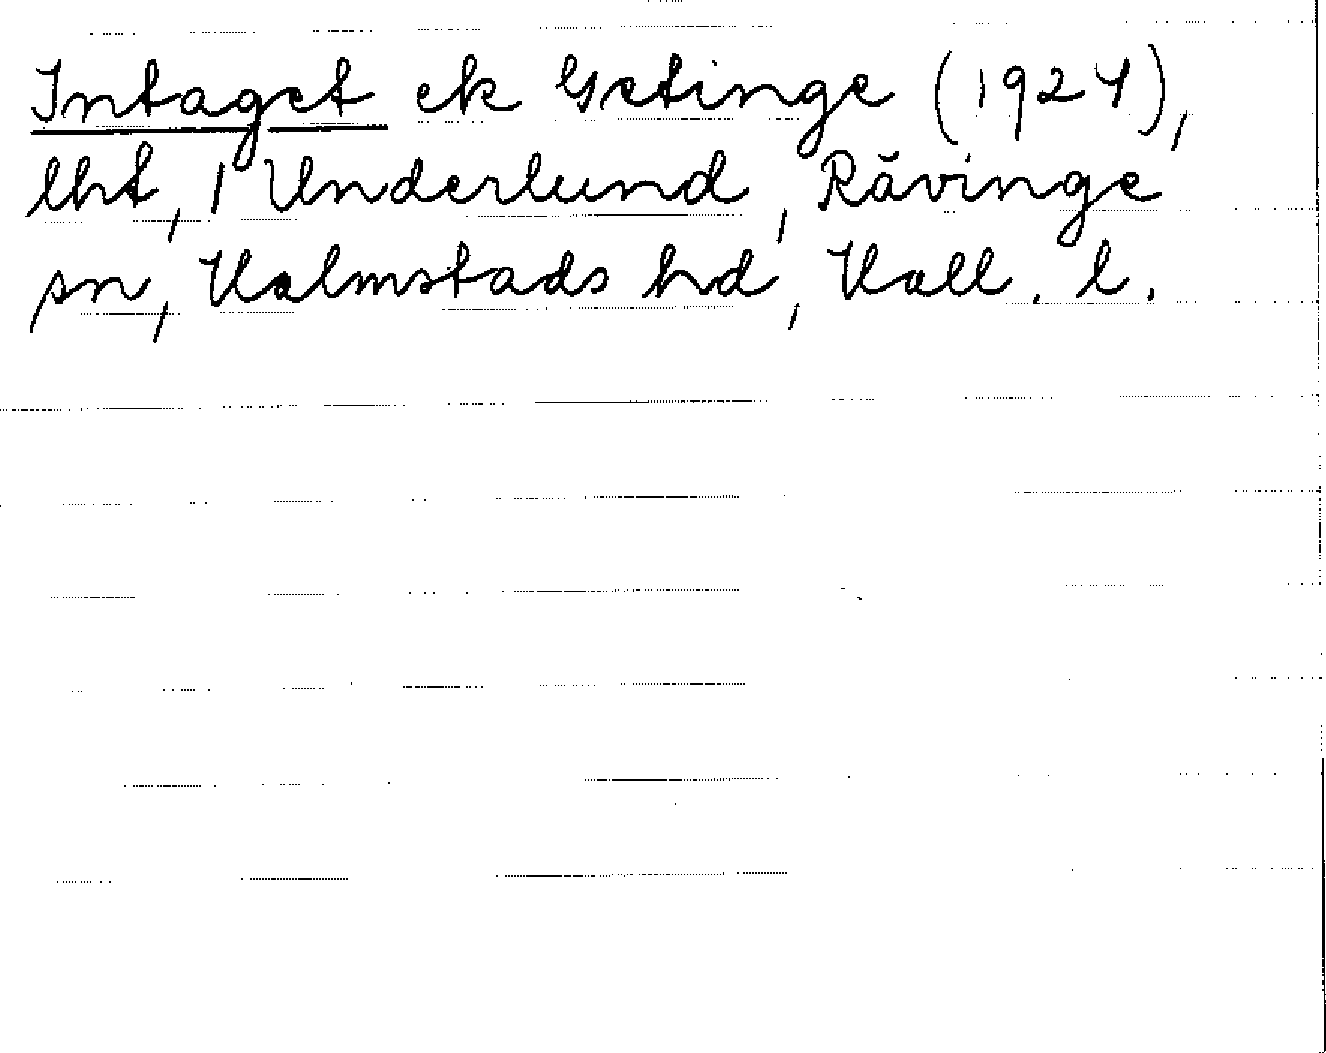 Intaget ek Getinge (1924),
lht, 1 Underlund, Rävinge
sn, Halmstads hd, Hall. l.